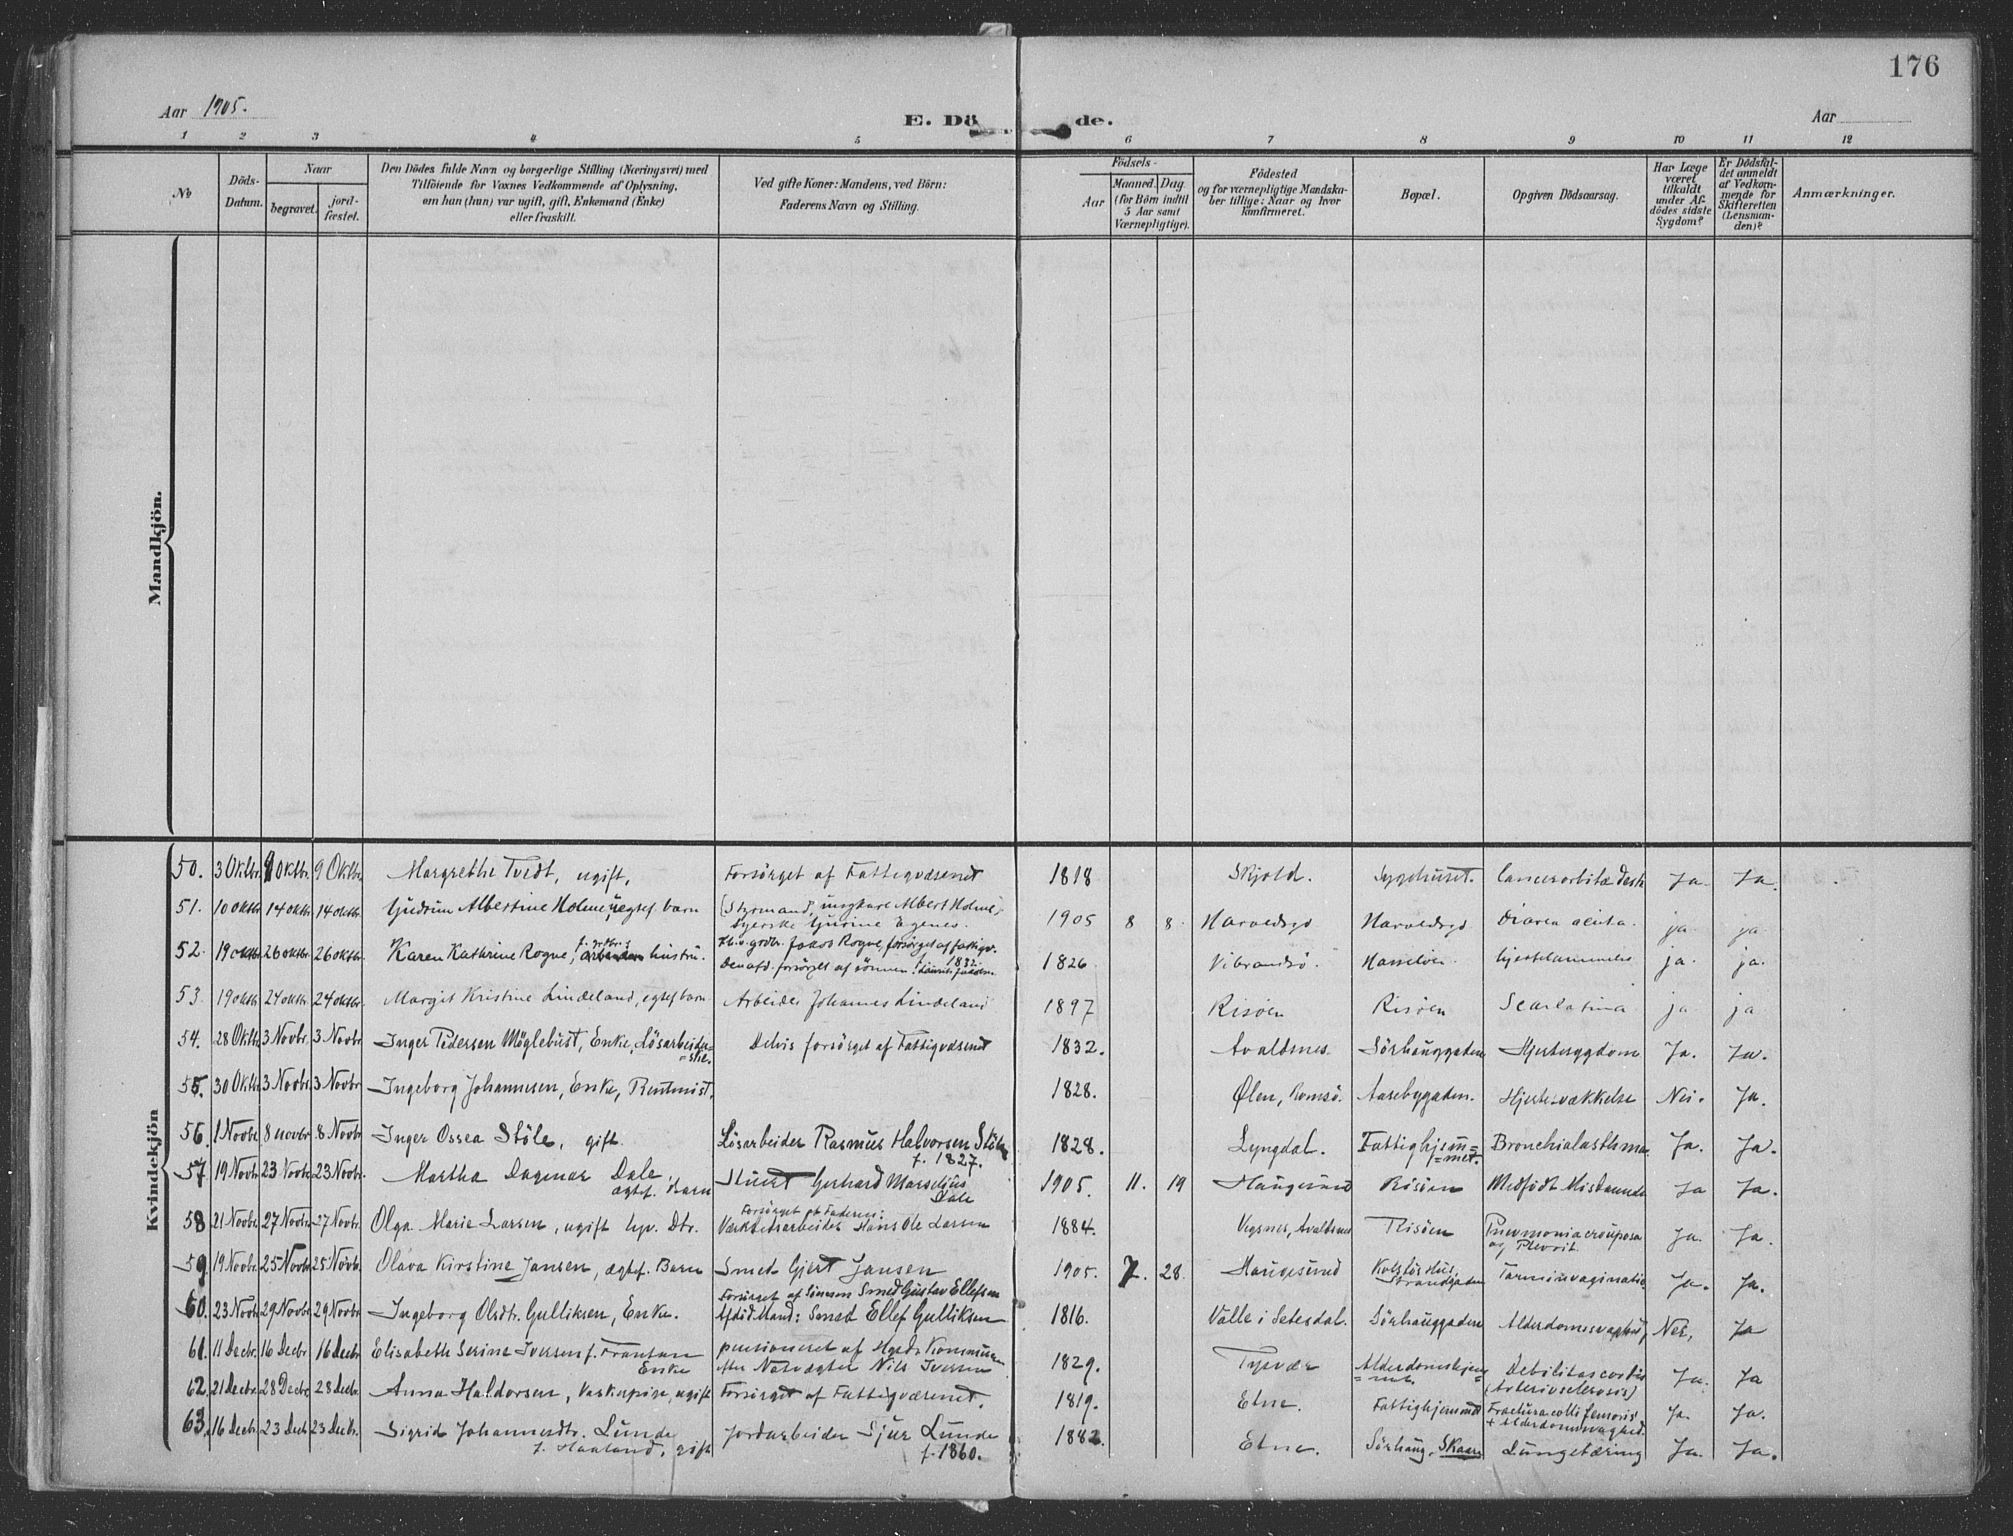 176
Aar 1905.
E. Dö de.
Aar
1 2 3 4 5 6 7 8 9 10 11 12
No
Döds-
Datum.
Naar
begravet.
jord-
fæstet.
Den Dödes fulde Navn og borgerlige Stilling (Næringsvei) med
Tilföiende for Voxnes Vedkommende af Oplysning,
om han (hun) var ugift, gift, Enkemand (Enke)
eller fraskilt.
Ved gifte Koner: Mandens, ved Börn:
Faderens Navn og Stilling.
Födsels-
Aar
Maaned. Dag
(for Börn indtil
5 Aar samt
Værnepligtige).
Födested
og for værnepligtige Mandska-
ber tillige: Naar og hvor
konfirmeret.
Bopæl.
Opgiven Dödsaarsag.
Har Læge
været
tilkaldt
under Af-
dödes sidste
Sygdom?
Er Dödsfal-
det anmeldt
af Vedkom-
mende for
Skifteretten
(Lensman-
den)?
Anmærkninger.
Mandkjön.
Kvindekjön
50. 3 Oktbr. 9 Oktbr. 9 Oktbr. Margrethe Tvedt, ugift, Forsörget af Fattigvæsenet 1818 Skjold. Sygehuset. Cancer orbitæ dextr Ja. Ja.
51. 10 oktbr 14 oktbr 14 oktbr. Gudrun Albertine Holme, uegtef. barn (Styrmand, ungkare Albert Holme),
Syerske Gurine Egenes. 1905 8 8 Harvedsgd Harvedsgd Diarea acuta. ja ja
52. 19 oktbr 26 oktbr. 26 oktbr. Karen Kathrine Rogne, f. grdbr.s hustru. Fh.v. grdbr. Jakob Rogne, forsörget af fattigv.
1832
Den afd. forsörget af sönnen 1826 Vibrandsö. Hasselöen ja. ja.
53. 19 oktbr 24 oktbr 24 oktbr. Margit Kristine Lindeland, egtef barn Arbeider Johannes Lindeland 1897 Risöen Risöen Scarlatina ja ja
54. 28 Oktbr. 3 Novbr. 3 Novbr. Inger Pedersen Möglebust, Enke, Lösarbeider=
=ske. Delvis forsörget af Fattigvæsenet 1832. Avaldsnes. Sörhauggaden Hjertesygdom Ja. Ja.
55. 30 Oktbr. 3 Novbr. 3 Novbr. Ingeborg Johannesen, Enke, Rentenist. 1828. Ölen, Romsö. Aasebygaden. Hjertesvækkelse Nei. Ja.
56. 1 Novbr. 8 novbr. 8 Novbr. Inger Ossea Stöle, gift. Lösarbeider Rasmus Halvorsen Stöle
f. 1827. 1828. Lyngdal. Fattighjem=
=met. Bronchialasthma Ja. Ja.
57. 19 Novbr. 23 Novbr. 23 Novbr. Martha Dagmar Dale,
ægtef. Barn Stuert Gerhard Marselius
Dale 1905. 11. 19 Haugesund Risöen Medfödt Misdannelse Ja Ja.
58 21 Novbr. 27 Novbr. 27 Novbr. Olga Marie Larsen, ugift hjv. Dtr. Forsörget af Faderen:
Værkstedsarbeider Hans Ole Larsen 1884. Vegsnes, Avaldsnes Risöen Pneumonia crouposa
og Plevrit. Ja. Ja.
59. 19 Novbr. 25 Novbr. 25 Novbr. Olava Kirstine Jansen, ægtef. Barn Smed Gjert Jansen 1905. 7. 28. Haugesund Kolstös Hus,
Strandgaden Tarminvaginatio Ja. Ja.
60. 23 Novbr. 29 Novbr. 29 Novbr. Ingeborg Olsdtr. Gulliksen, Enke. Forsörget af Sönnen Smed Gustav Ellefsen
Afdöd Mand: Smed Ellef Gulliksen 1816. Valle i Setesdal. Sörhauggaden Alderdomssvaghed Nei, Ja
61. 11 Decbr. 16 Decbr 16 Decbr Elisabeth Serine Iversen f. Frantsen
Enke pensioneret af Hgsds Kommune
efter Natvægter Nils Iversen 1829. Tysvær Alderdomshjem=
=met. Debilitas cordis
(Arteriosclerosis) Ja. Ja
62. 21 Decbr. 28 Decbr. 28 Decbr. Anna Haldorsen, Vaskepige, ugift Forsörget af Fattigvæsenet. 1819. Etne. Fattighjemmet Fractura colli femoris
+ Alderdomssvaghed. Ja. Ja.
63. 16 Decbr. 23 Decb 23 Decbr. Sigrid Johannesdtr. Lunde
f. Haaland, gift Jordarbeider Sjur Lunde
f. 1860. 1882. Etne. Sörhaug, Skaare Lungetæring Ja. Ja.